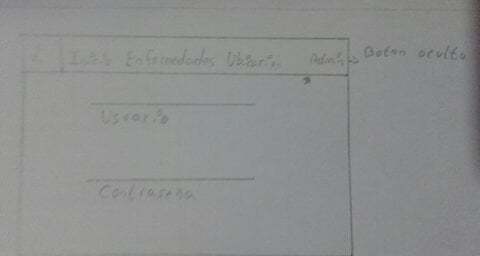 Inicio Enfermedades Usuario Admin → Boton oculto
Usuario
Contraseña